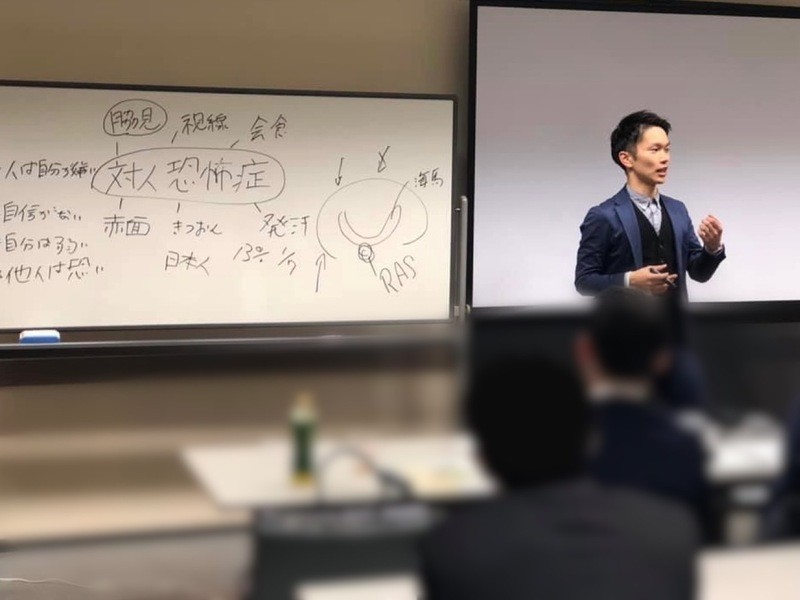 脇見 視線 会食
人は自分が嫌い
対人恐怖症
海馬
自信がない
赤面 きつおん 発汗
自分は弱い
日本人 13% 1/7
他人は恐い
RAS